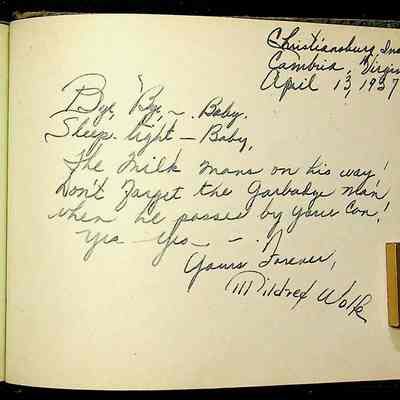 Christiansburg, Ins
Cambria, Virgin
April 13, 1937
Bye, Bye, ~ Baby.
Sleep tight – Baby,
The Milk mans on his way!
Don't Forget the Garbadge Man,
when he passes by your Can!
Yea – Yea – – .
Yours Forever,
Mildred Wolfe